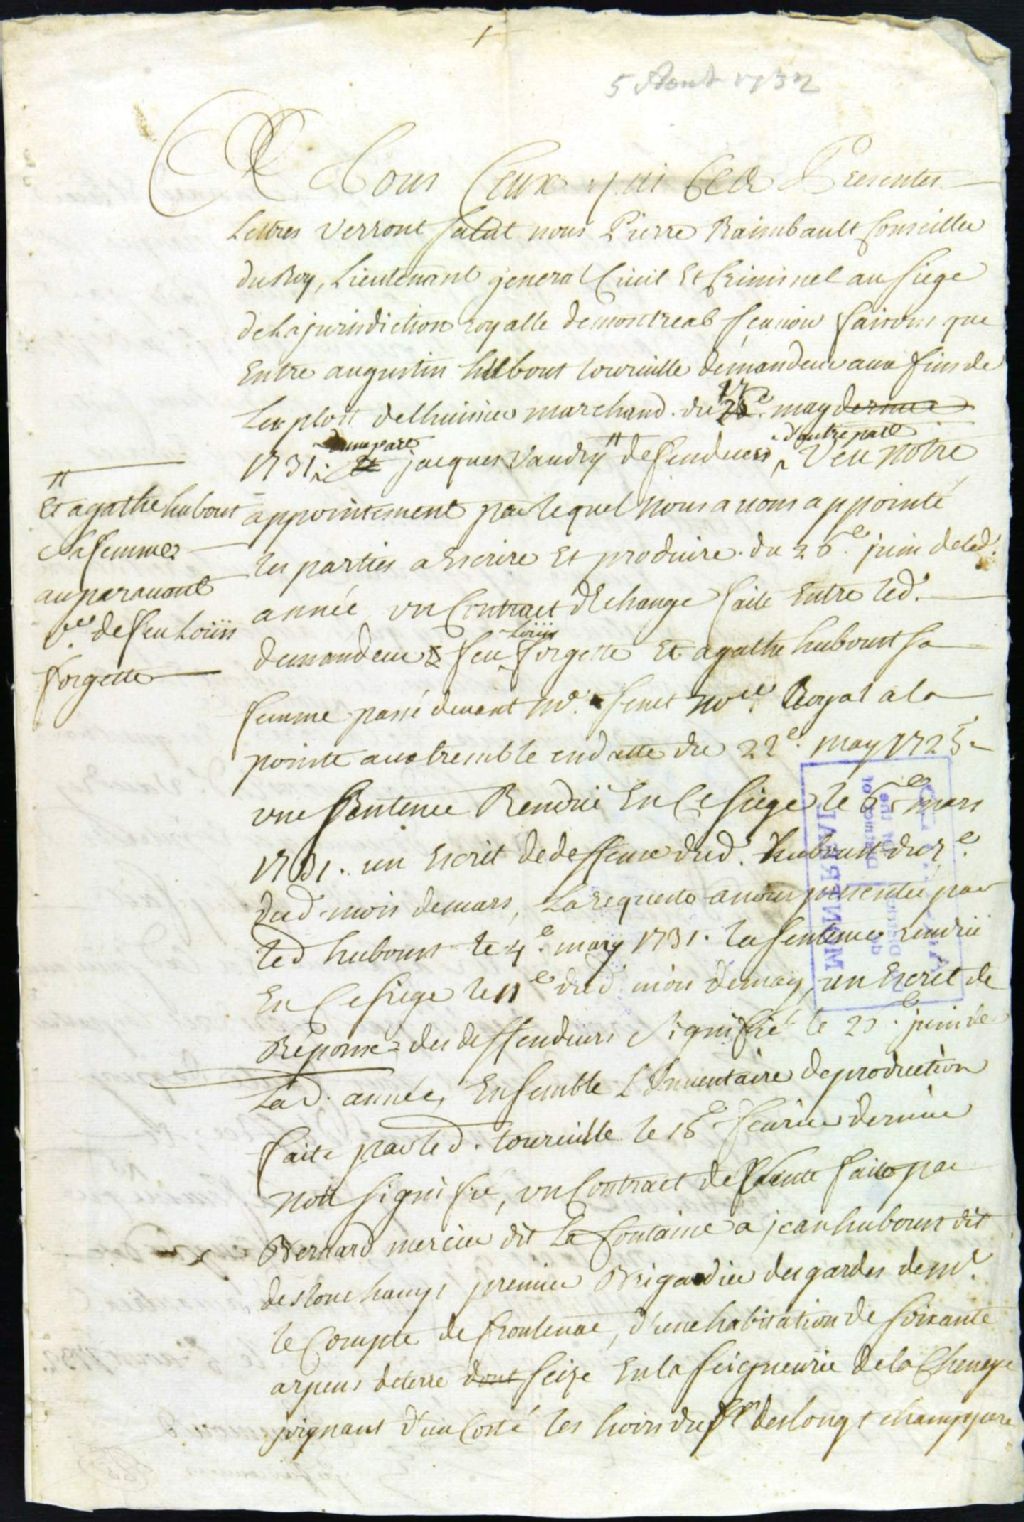 5 Aoust 1732
A Tous Ceux qui Ces Presentes
Lettres verront salut nous Pierre Raimbault Conseiller
du Roy, Lieutenant general Civil Et Criminel au siege
de la jurisdiction royalle de montreal scavoir faisons que
Entre augustin hubout tourville demandeur aux fins de
l'exploit de l'huissier marchand du 17e may dernier
1731. d'une part Et jacques Vaudry # deffendeurs d'autre part Veu notre
#
Et agathe hubout
sa femme
auparavant
ve. de feu Loüis
forgette
appointement par lequel nous avons appointé
les parties a Escrire Et produire du 26e juin de lad.
année un Contract d'Echange faite Entre led.
demandeur & feu Loüis forgette Et agathe hubourt sa
femme passé devant Me. senet nore. Royal a la
pointe aux trembles en datte du 22e. may 1725
une sentence Rendüe En Ce siege le 6e mars
1731. un Escrit de deffense dud. hubourt du 7e.
dud. mois de mars, La requeste a nous presentée par
led hubourt le 4e. may 1731. la sentence rendüe
En Ce siege le 11e dud. mois de may, un Escrit de
Reponse des deffendeurs signifié le 27e juin de
Lad. année, Ensemble L'Inventaire de production
faite par led. tourville le 16e fevrier dernier
non signifié, un Contract de Vente faite par
Bernard mercier dit La fontaine a jean hubourt dit
deslonchamps premier Brigadier des gardes de Mr.
le Compte de frontenac, d'une habitation de soixante
arpens de terre dont seize En la seigneurie de la Chenaye
joignant d'un Costé les hoirs du sr. deslongschamps par
MONTREAL